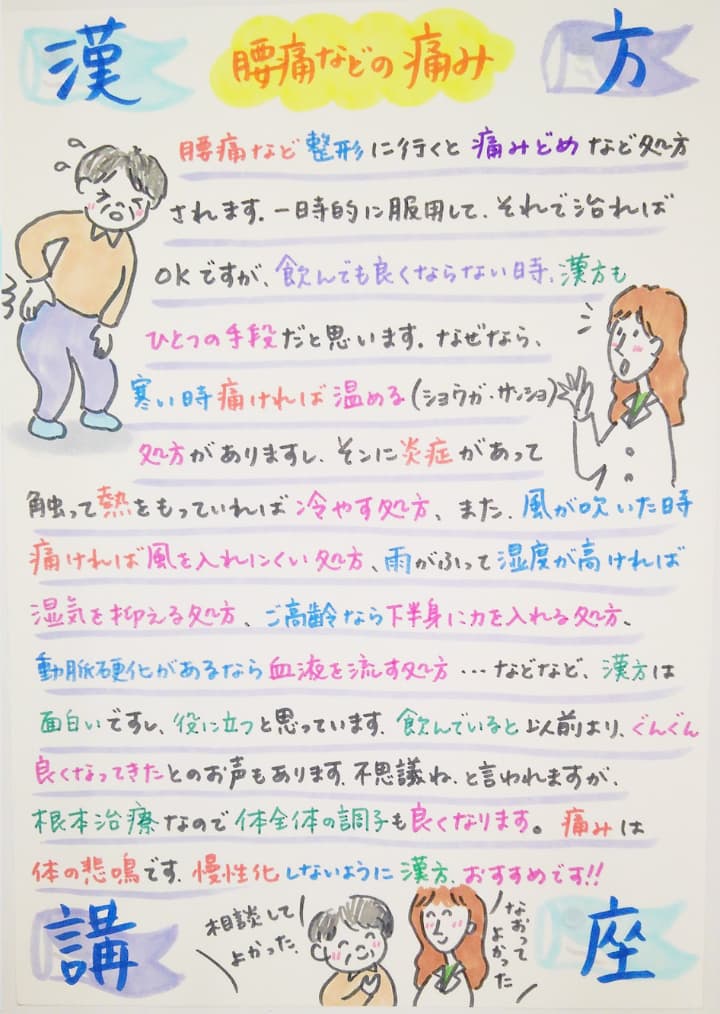 漢方
腰痛などの痛み
腰痛など整形に行くと痛みどめなど処方
されます。一時的に服用して、それで治れば
OKですが、飲んでも良くならない時、漢方も
ひとつの手段だと思います。なぜなら、
寒い時痛ければ温める(ショウガ・サンショ)
処方がありますし、そこに炎症があって
触って熱をもっていれば冷やす処方、また、風が吹いた時
痛ければ風を入れにくい処方、雨がふって湿度が高ければ
湿気を抑える処方、ご高齢なら下半身に力を入れる処方、
動脈硬化があるなら血液を流す処方…などなど、漢方は
面白いですし、役に立つと思っています。飲んでいると以前より、ぐんぐん
良くなってきたとのお声もあります。不思議ね、と言われますが、
根本治療なので体全体の調子も良くなります。痛みは
体の悲鳴です。慢性化しないように漢方、おすすめです!!
相談して
よかった。
なおって
よかった
講座